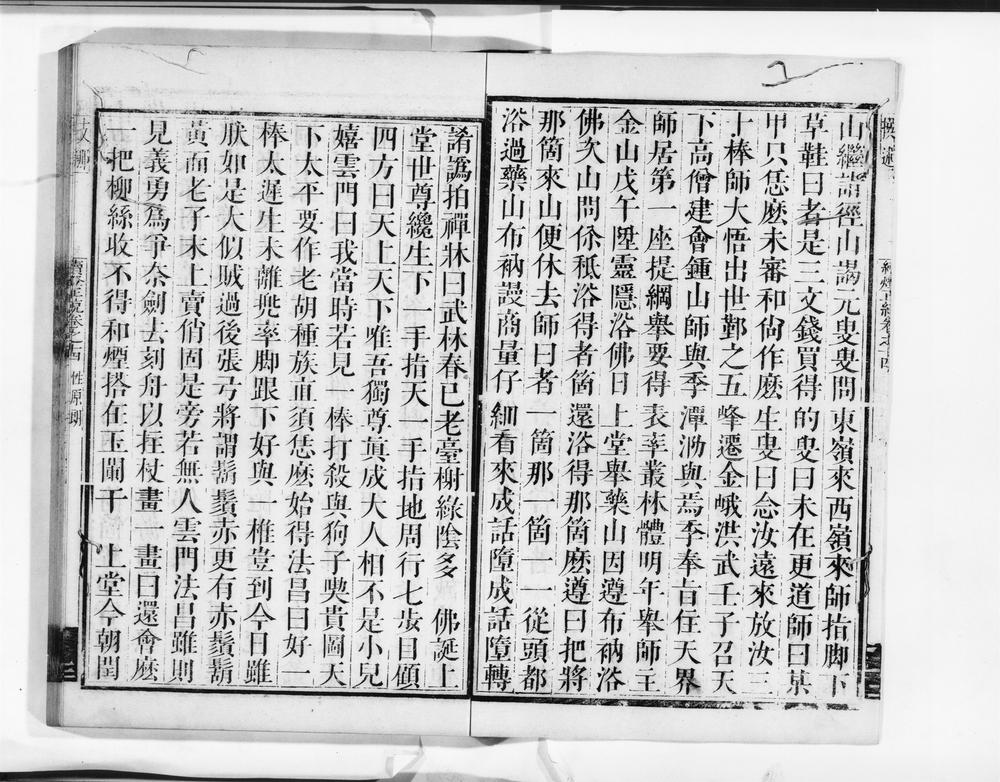 山繼詣徑山謁元叟叟問東嶺來西嶺來師指脚下
草鞋曰者是三文錢買得的叟曰未在更道師曰某
甲只恁麽未審和尙作麽生叟曰念汝遠來放汝三
十棒師大悟出世鄞之五峰遷金峨洪武壬子召天
下高僧建會鍾山師與季潭泐與焉季奉旨住天界
師居第一座提綱舉要得表率叢林體明年舉師主
金山戊午陞靈隱浴佛日上堂舉藥山因遵布衲浴
佛次山問你秖浴得者箇還浴得那箇麽遵曰把將
那箇來山便休去師曰者一箇那一箇一一從頭都
浴過藥山布衲謾商量仔細看來成話墮成話墮轉
諸譌拍禪牀曰武林春已老臺榭綠陰多 佛誕上
堂世尊纔生下一手指天一手指地周行七步目顧
四方曰天上天下唯吾獨尊眞成大人相不是小兒
嬉雲門曰我當時若見一棒打殺與狗子喫貴圖天
下太平要作老胡種族直須恁麽始得法昌曰好一
棒太遲生未離兜率脚跟下好與一椎豈到今日雖
肰如是大似賊過後張弓將謂鬍鬚赤更有赤鬚鬍
黃面老子末上賣俏固是旁若無人雲門法昌雖則
見義勇爲爭奈劍去刻舟以拄杖畫一畫曰還會麽
一把柳絲收不得和煙搭在玉闌干 上堂今朝閏
續燈正統卷之十四 性原明